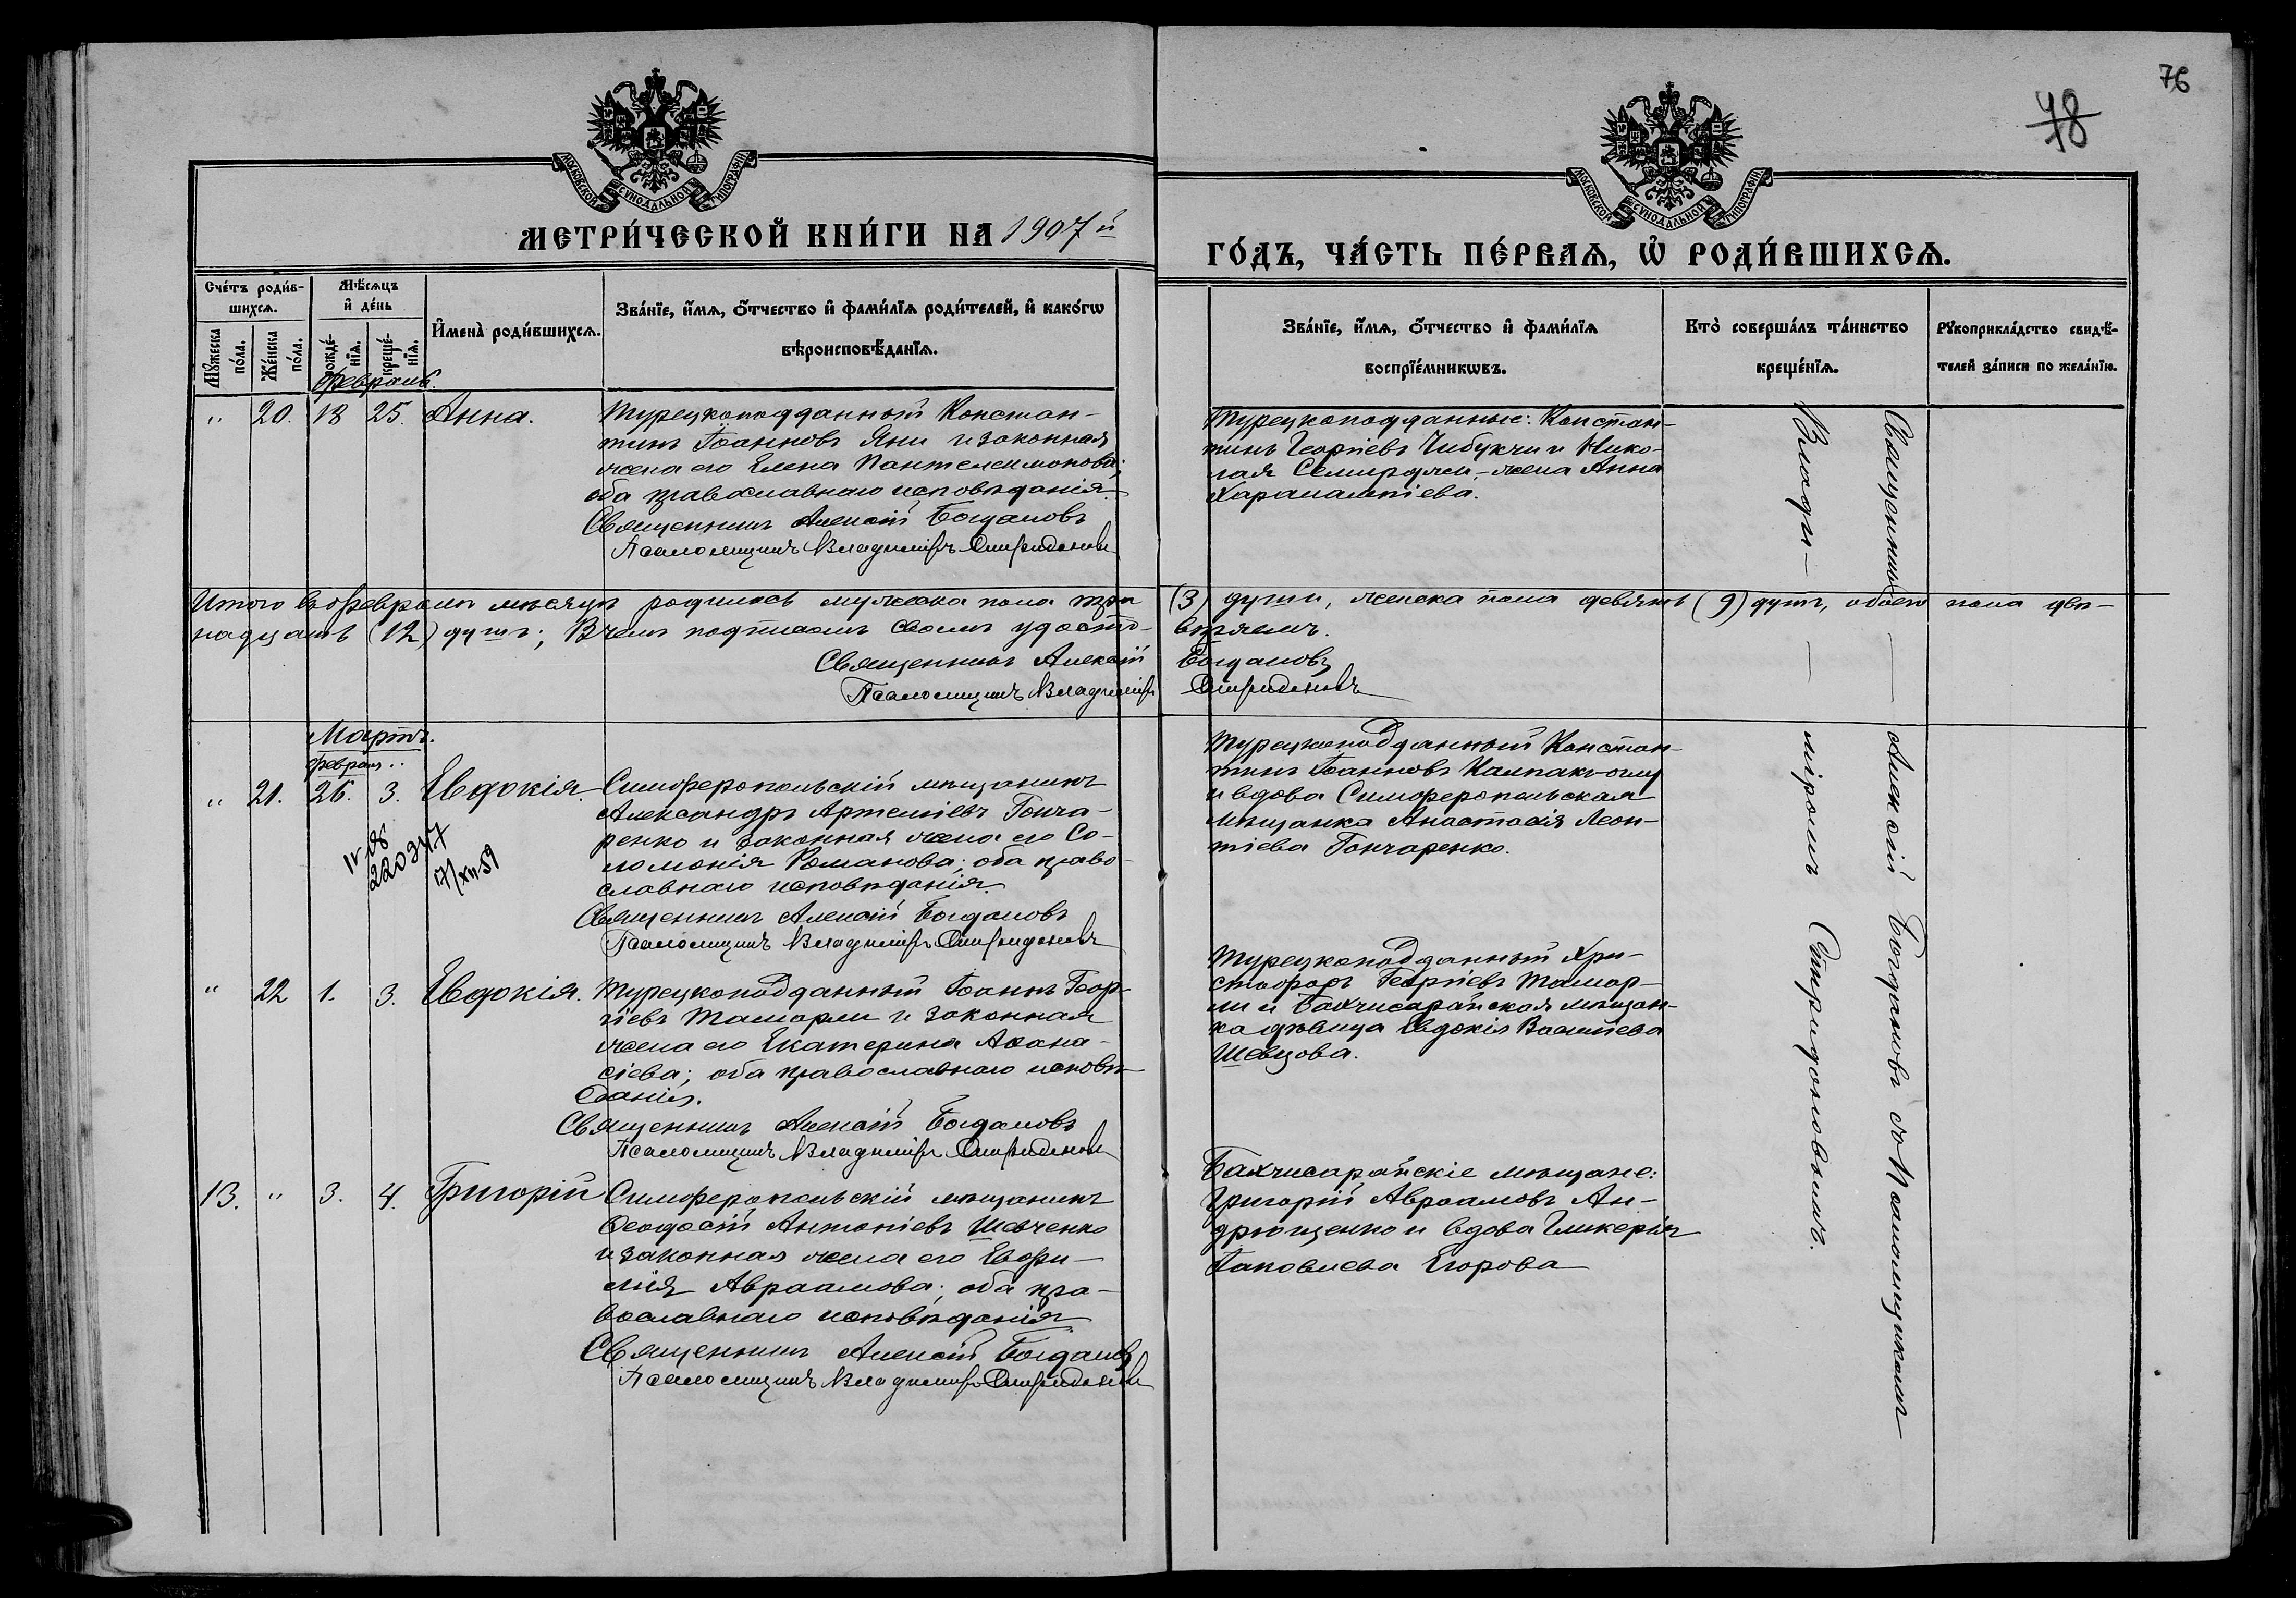 76
78
МОСКОВСКОЙ СѴНОДАЛЬНОЙ ТИПОГРАФІИ
МОСКОВСКОЙ СѴНОДАЛЬНОЙ ТИПОГРАФІИ
МЕТРИ́ЧЕСКОЙ КНИ́ГИ НА 1907й
ГО́ДЪ, ЧА́СТЬ ПЕ́РВАѦ, Ѡ҆ РОДИ́ВШИХСѦ.
Сче́тъ роди́в-
шихсѧ.
Мꙋжеска по́ла.
Же́нска по́ла.
Мѣ́сѧцъ
и҆ де́нь
рожде́-
нїѧ.
креще́-
нїѧ.
И҆мена̀ роди́вшихсѧ.
Зва́нїе, и҆́мѧ, ѻ҆́тчество и҆ фами́лїѧ роди́телей, и҆ како́гѡ
вѣроисповѣ́данїѧ.
Зва́нїе, и҆́мѧ, ѻ҆́тчество и҆ фами́лїѧ
воспрїе́мникѡвъ.
Кто̀ соверша́лъ та́инство
креще́нїѧ.
Рꙋкоприкла́дство свидѣ́-
телей за́писи по жела́нїю.
Февраль.
" 20. 18 25. Анна.
Турецкоподданный Констан-
тинъ Іоанновъ Яни и законная
жена его Елена Пантелеимонова;
оба православнаго исповѣданія.
Священникъ Алексій Богдановъ
Псаломщикъ Владиміръ Спиридоновъ
Турецкоподданные: Констан-
тинъ Георгіевъ Чибукчи и Нико-
лая Семирджи, жена Анна
Харалампіева.
Итого въ февралѣ мѣсяцѣ родилось мужеска пола три (3) души, женска пола девять (9) душъ, обоего пола двѣ-
надцать (12) душъ; В чемъ подписомъ своимъ удосто- вѣряемъ.
Священникъ Алексій Богдановъ
Псаломщикъ Владиміръ Спиридоновъ
Мартъ.
февраля
" 21. 26. 3. Евдокія.
Симферопольскій мѣщанинъ
Александръ Артеміевъ Гонча-
ренко и законная жена его Со-
ломонія Романова; оба право-
славнаго исповѣданія.
Священникъ Алексій Богдановъ
Псаломщикъ Владиміръ Спиридоновъ
Турецкоподданный Констан-
тинъ Іоанновъ Калпакъ-оглу
и вдова Симферопольская
мѣщанка Анастасія Леон-
тіева Гончаренко.
220347
" 22 1. 3. Евдокія.
Турецкоподданный Іоаннъ Геор-
гіевъ Тамарли и законная
жена его Екатерина Аѳана-
сіева; оба православнаго исповѣ-
данія.
Священникъ Алексій Богдановъ
Псаломщикъ Владиміръ Спиридоновъ
Турецкоподданный Хри-
стофоръ Георгіевъ Тамар-
ли и Бахчисарайская мѣщан-
ка дѣвица Евдокія Василіева
Шевцова.
13. " 3. 4. Григорій
Симферопольскій мѣщанинъ
Ѳеодосій Антоніевъ Шевченко
и законная жена его Евфи-
мія Авраамова; оба пра-
вославнаго исповѣданія
Священникъ Алексій Богдановъ
Псаломщикъ Владиміръ Спиридоновъ
Бахчисарайскіе мѣщане:
Григорій Авраамовъ Ан-
дрющенко и вдова Гликерія
Іаковлева Егорова
Священникъ — Алексій Богдановъ съ Псаломщикомъ
Влади- — — міромъ Спиридоновымъ.